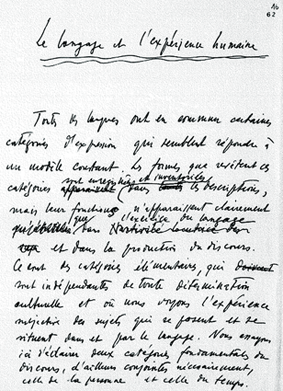 62
Le langage et l'expérience humaine
Toutes les langues ont en commun certaines
catégories d'expression qui semblent répondre à
un modèle constant. Les formes que revêtent ces
sont enregistrées et inventoriées
catégories apparaissent dans les descriptions,
mais leurs fonctions n'apparaissent clairement
que l'exercice du langage
dans
et dans la production du discours.
Ce sont des catégories élémentaires, qui
sont indépendantes de toute détermination
culturelle et où nous voyons l'expérience
subjective des sujets qui se posent et se
situent dans et par le langage. Nous essayons
ici d'éclairer deux catégories fondamentales du
discours, d'ailleurs conjointes nécessairement,
celle de la personne et celle du temps.